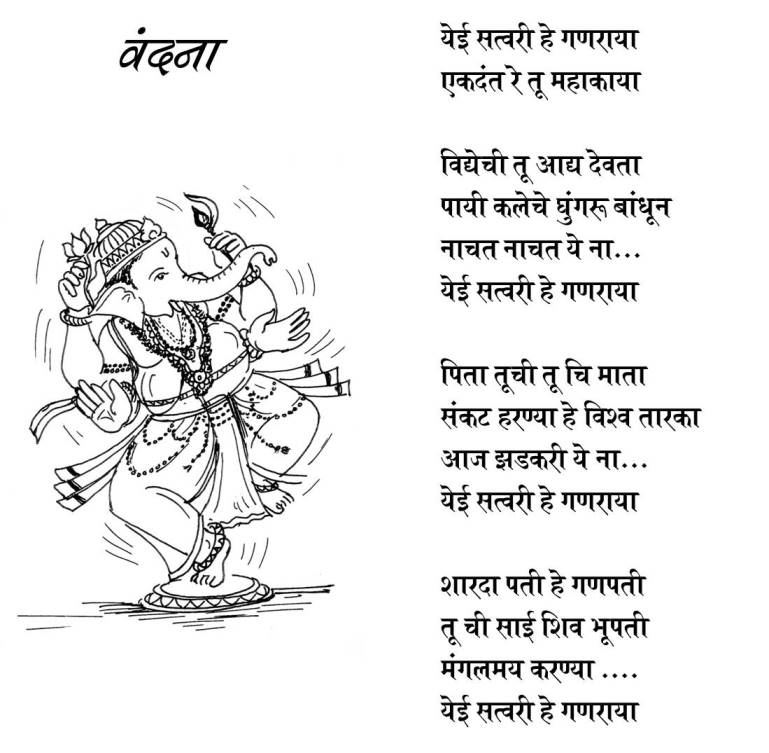 वंदना
येई सत्वरी हे गणराया
एकदंत रे तू महाकाया
विद्येची तू आद्य देवता
पायी कलेचे घुंगरू बांधून
नाचत नाचत ये ना...
येई सत्वरी हे गणराया
पिता तूची तू चि माता
संकट हरण्या हे विश्व तारका
आज झडकरी ये ना...
येई सत्वरी हे गणराया
शारदा पती हे गणपती
तू ची साई शिव भूपती
मंगलमय करण्या ....
येई सत्वरी हे गणराया